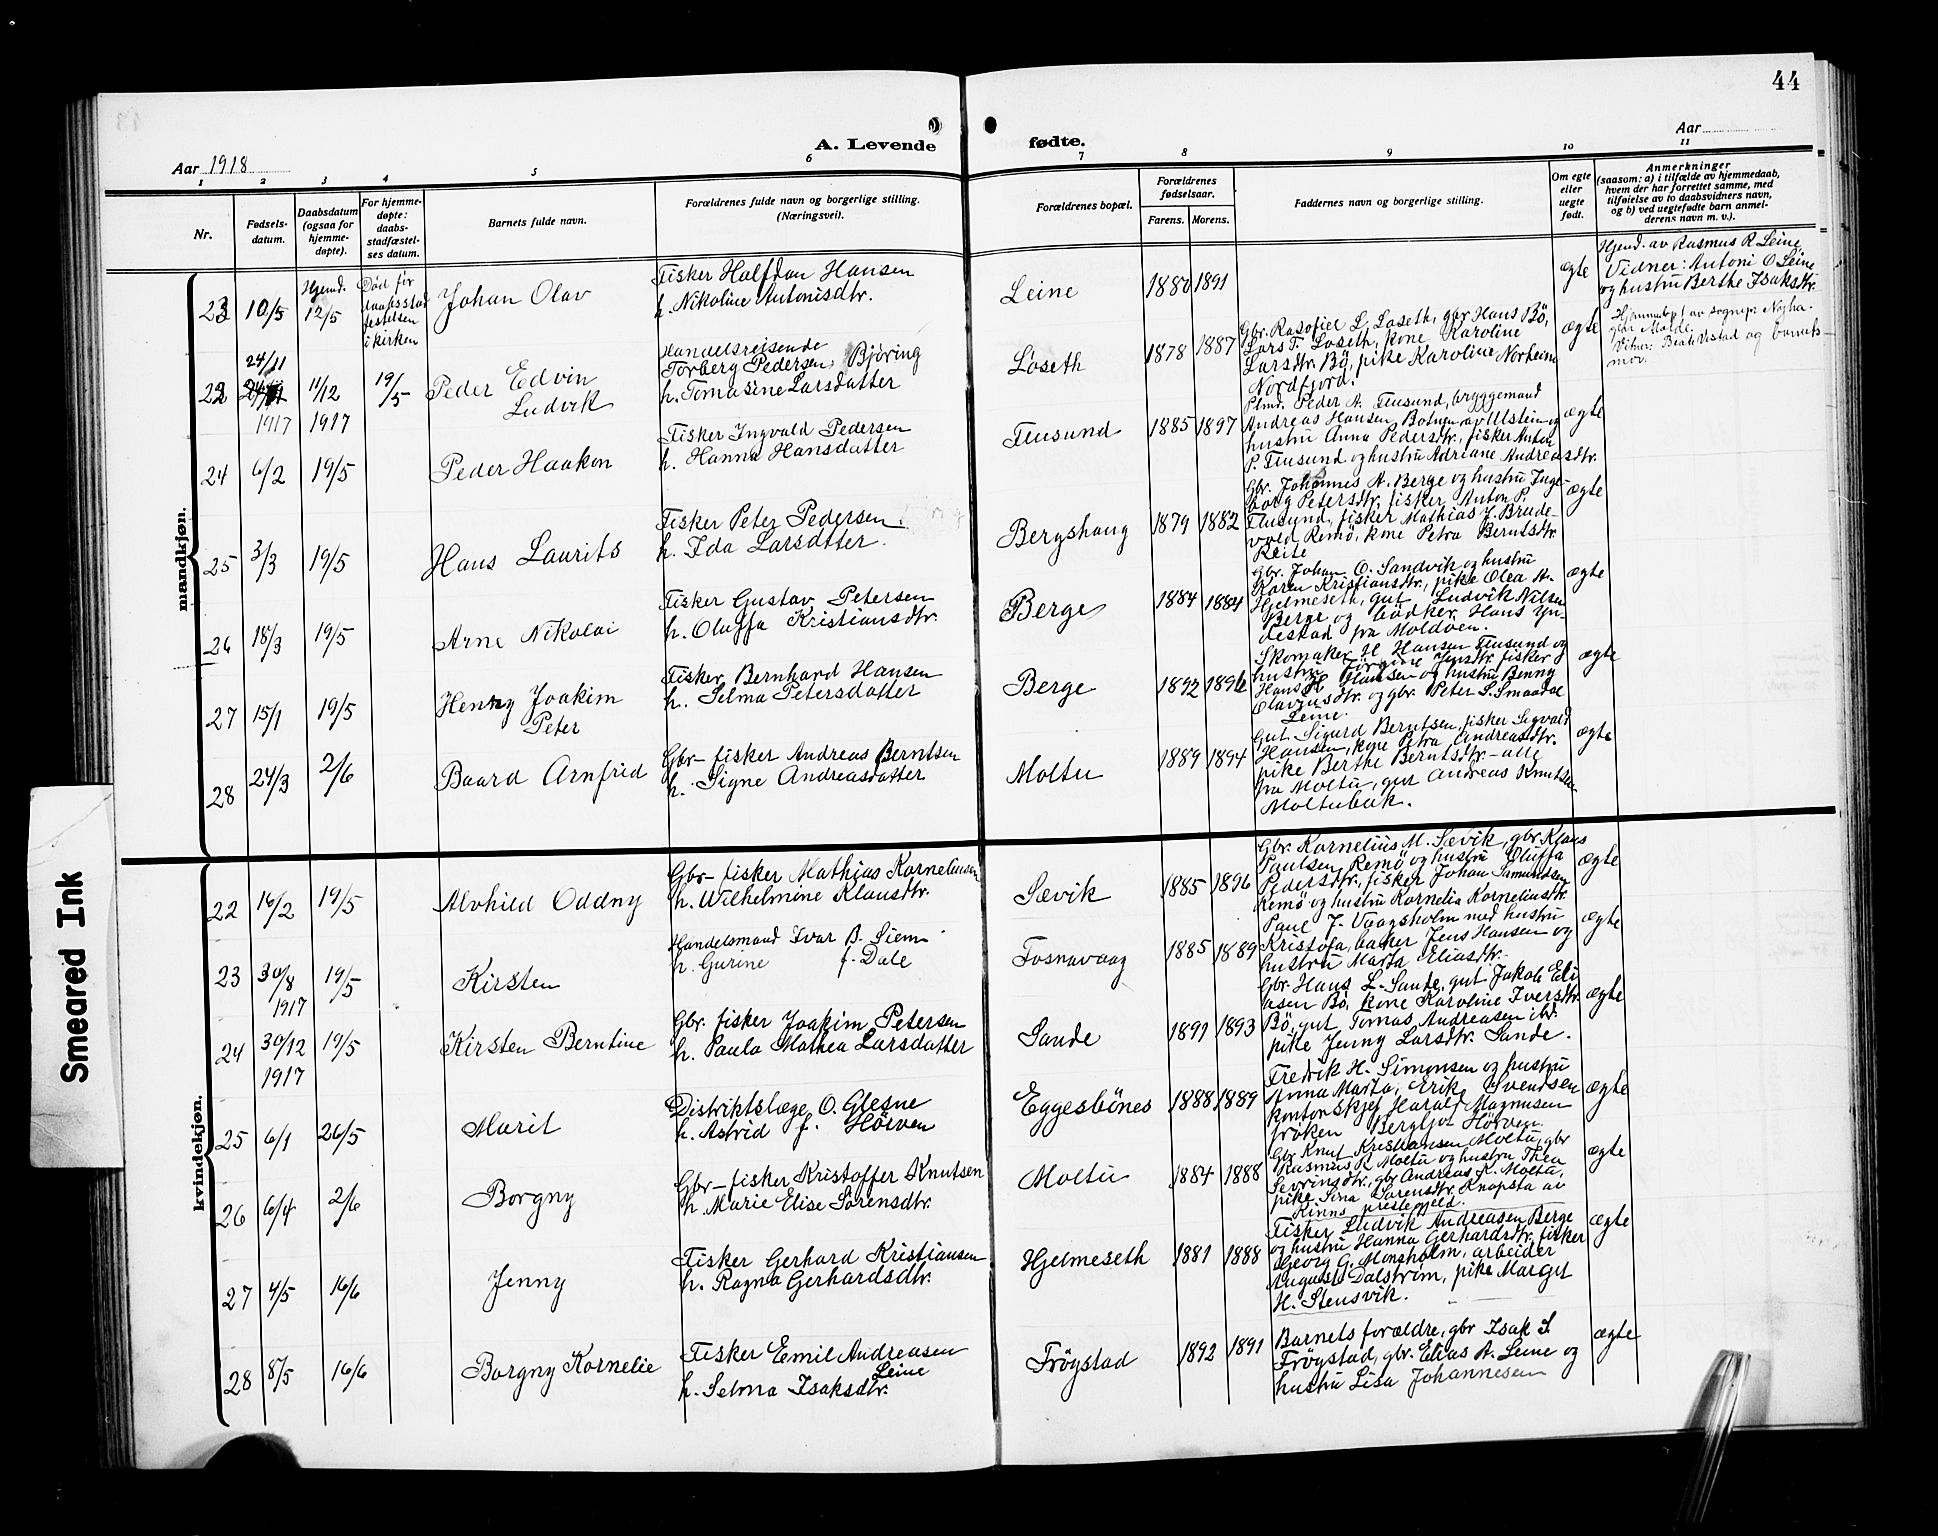 44
A. Levende fødte.
Aar 1918
Aar
1 2 3 4 5 6 7 8 9 10 11
Nr.
Fødsels-
datum.
Daabsdatum
(ogsaa for
hjemme-
døpte).
For hjemme-
døpte:
daabs-
stadfæstel-
ses datum.
Barnets fulde navn.
Forældrenes fulde navn og borgerlige stilling.
(Næringsvei).
Forældrenes bopæl.
Forældrenes
fødselsaar.
Farens. Morens.
Faddernes navn og borgerlige stilling.
Om egte
eller
uegte
født.
Anmerkninger
(saasom: a) i tilfælde av hjemmedaab,
hvem der har forrettet samme, med
tilføielse av to daabsvidners navn,
og b) ved uegtefødte barn anmel-
derens navn m. v.).
mandkjøn.
23 10/5 Hjemd. 12/5
Død før
daabsstad
festelsen
i kirken
Johan Olav
Fisker Halfdan Hansen
h. Nikoline Antonisdtr.
Leine 1880 1891
ægte
Hjemd. av Rasmus R. Leine
Vidner: Antoni O Leine
og hustru Berthe Isaksdtr.
22 24/11 1917 11/12 1917 19/5
Peder Edvin
Ludvik
Handelsreisende
Torberg Pedersen Björing
h. Tomasine Larsdatter
Löseth 1878 1887
Gbr. Rasofiel L. Løseth, gbr Hans Bö,
Lars T. Løseth, kone Karoline
Larsdtr. Bö, pike Karoline Norheim
Nordfjord.
ægte
24 6/2 19/5
Peder Haakon
Fisker Ingvald Pedersen
h. Hanna Hansdatter
Flusund 1885 1897
Plmd. Peder A. Flusund, bryggemand
Andreas Hansen Botnen av Ulstein og
hustru Anna Pedersdtr., fisker Anton
P. Flusund og hustru Adriane Andreasdtr.
ægte
25 3/3 19/5
Hans Laurits
Fisker Peter Pedersen
h. Ida Larsdatter.
Bergshaug 1879 1882
Gbr. Johannes A. Berge og hustru Inge-
borg Petersdtr., fisker Anton P.
Flusund, fisker Mathias J. Brude-
vold Remö, kone Petra Berntsdtr.
Reite
ægte
26 18/3 19/5
Arne Nikolai
Fisker Gustav Petersen
h. Oluffa Kristiansdtr.
Berge 1884 1884
Gbr. Johan O. Sandvik og hustru
Karen Kristiansdtr, pike Olea A.
Hjelmeseth, gut Ludvik Nilsen
Berge og bödker Hans Yn-
destad fra Moldöen.
ægte
27 15/1 19/5
Henry Joakim
Peter
Fisker Bernhard Hansen
h. Selma Petersdatter
Berge 1892 1896
Skomaker H Hansen Flusund og
hustru Jörgine Jensdtr. fisker
Hans H Hansen og hustru Benny
Olavusdtr. og gbr. Peter S. Smaadal
Leine.
ægte
28 24/3 2/6
Baard Arnfred
Gbr-fisker Andreas Berntsen
h. Signe Andreasdatter
Moltu 1889 1894
Gut Sigurd Berntsen, fisker Sigvald
Hansen, kone Petra Andreasdtr.
pike Berthe Berntsdtr - alle
fra Moltu, gut Andreas Knutsen
Moltubak.
ægte
kvindekjøn.
22 16/2 19/5
Alvhild Oddny
Gbr-fisker Mathias Korneliusen
h. Wilhelmine Klausdtr.
Sævik 1885 1896
Gbr. Kornelius M. Sævik, gbr. Klaus
Paulsen Remö og hustru Oluffa
Pedersdtr., fisker Johan Samundsen
Remö og hustru Kornelia Korneliusdtr.
ægte
23 30/8 1917 19/5
Kirsten
Handelsmand Ivar B. Siem
h. Gurine f. Dale
Fosnavaag 1885 1889
Paul J. Vaagsholm med hustru
Kristofa, baker Jens Hansen og
hustru Marta Eliasdtr.
ægte
24 30/12 1917 19/5
Kirsten Berntine
Gbr. fisker Joakim Petersen
h. Paula Mathea Larsdatter
Sande 1891 1893
Gbr. Hans L. Sande, gut Jakob Eli
asen Bö, kone Karoline Iversdtr.
Bö, gut Tomas Andreasen
pike Jenny Larsdtr. Sande.
ægte
25 6/1 26/5
Marit
Distriktslæge O. Glesne
h. Astrid f. Höiven
Eggesbönes 1888 1889
Fredrik H. Simonsen og hustru
Anna Marta, Erik Svendsen
kontorskjef Harald Magnusen
fröken Bergljot Hörven.
ægte
26 6/4 2/6
Borgny
Gbr-fisker Kristoffer Knutsen
h. Marie Elise Sörensdtr.
Moltu 1884 1888
Gbr Knut Kristiansen Moltu, gbr
Rasmus K Moltu og hustru Thea
Sevrinsdtr, gbr Andreas K. Moltu,
pike Sina Sorensdtr. Knapsta av
Kinns prestegjeld.
ægte
27 4/5 16/6
Jenny
Fisker Gerhard Kristiansen
h. Ragna Gerhardsdtr.
Hjelmeseth 1881 1888
Fisker Ludvik Andreasen Berge
og hustru Hanna Gerhardsdtr, fisker
Georg G. Monsholm, arbeider
August Dalström, pike Margit
H. Stensvik.
ægte
28 8/5 16/6
Borgny Kornelie
Fisker Emil Andreasen
Leine
h. Selma Isaksdtr.
Fröystad 1892 1891
Barnets forældre, gbr Isak S.
Fröystad, gbr. Elias A. Leine og
hustru Lisa Johannesen
ægte
Smeared Ink